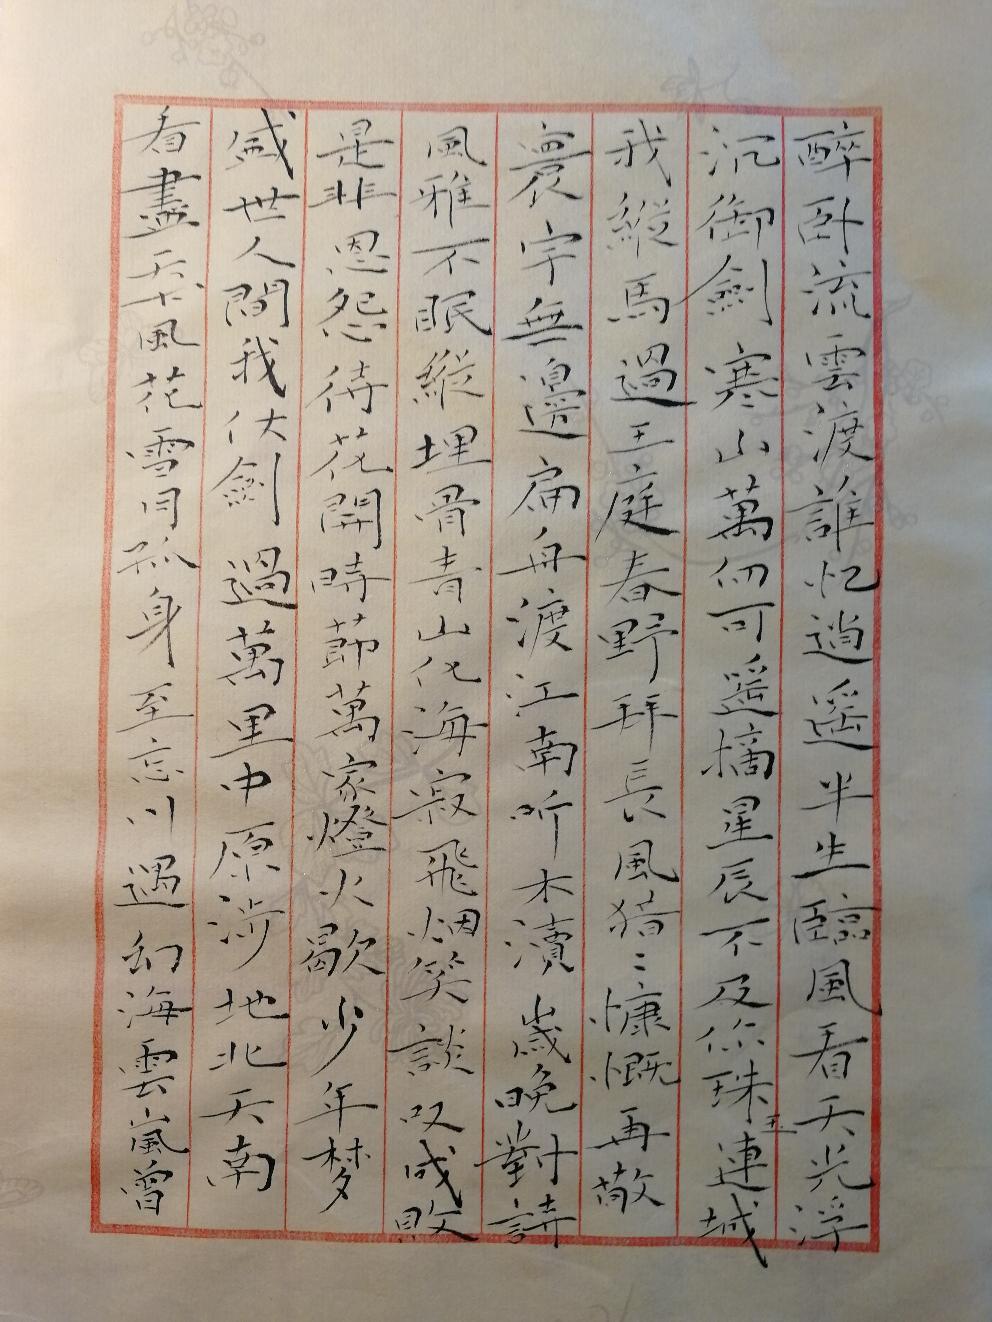 醉卧流雲渡誰忆逍遥半生臨風看天光浮
沉御劍寒山萬仞可遥摘星辰不及你珠玉連城
我縱馬過王庭春野拜長風猎〻慷慨再敬
寰宇無邊扁舟渡江南听木瀆歲晚對請
風雅不眠縱埋骨青山化海寂飛烟笑談叹成敗
是非恩怨待花開時莭萬家燈火歇少年梦
盛世人間我仗劍過萬里中原涉地北天南
看盡天下風花雪月孤身至忘川遇幻海雲嵐曾